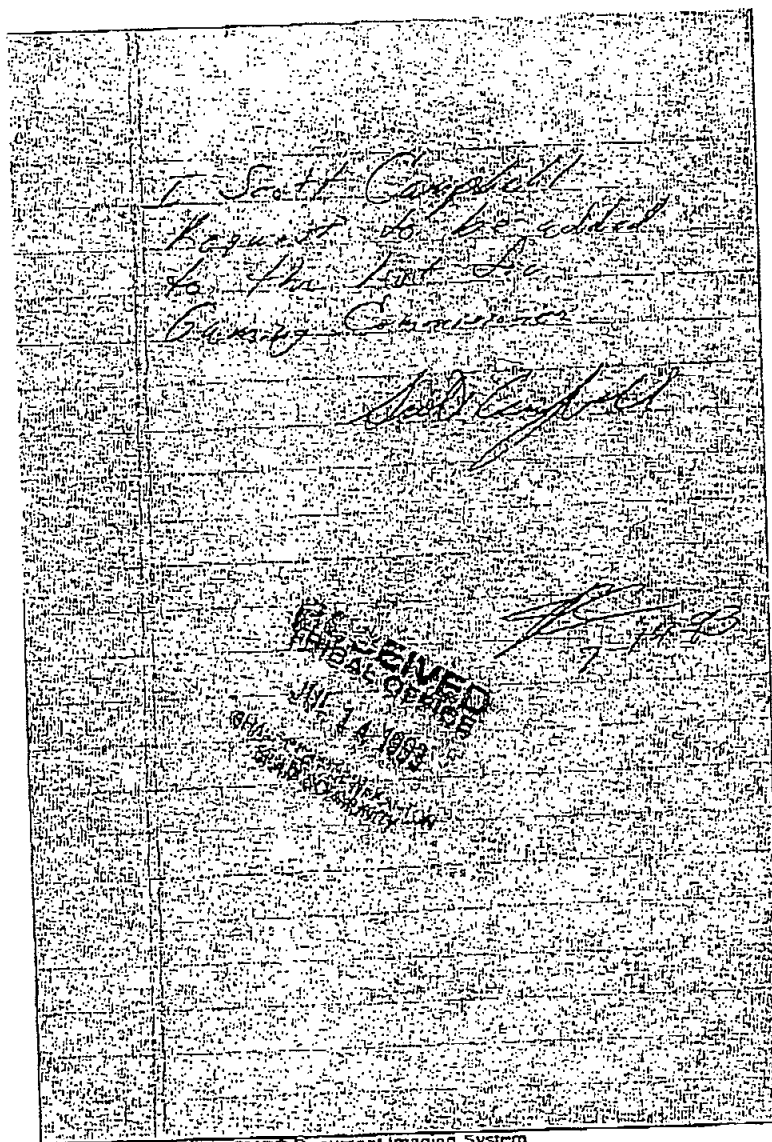 I Scott Campbell
Request to be added
to the list for
Gaming Commissioner
Scott Campbell
7-14-93
RECEIVED
TRIBAL OFFICE
JUL 14 1993
Document Imaging System